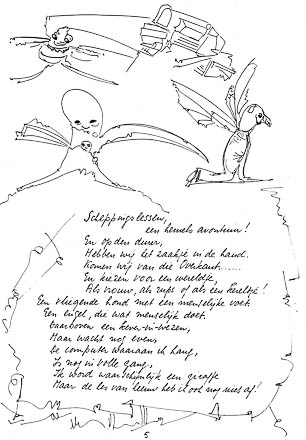 Scheppingslessen,
een hemels avontuur!
En op den duur,
Hebben wij het zaakje in de hand.
Komen wij van die Overkant......
En kiezen voor een wereldje,
Als vrouw, als rups of als een kereltje!
Een vliegende hond met een menselijke voet.
Een engel, die wat menselijk doet.
daarboven een kever-in-wezen,
Maar wacht nog even,
De computer waaraan ik hang,
Is nog in volle gang,
Ik word waarschijnlijk een giraffe
Maar de les van leeuw heb ik ook nog niet af!
5